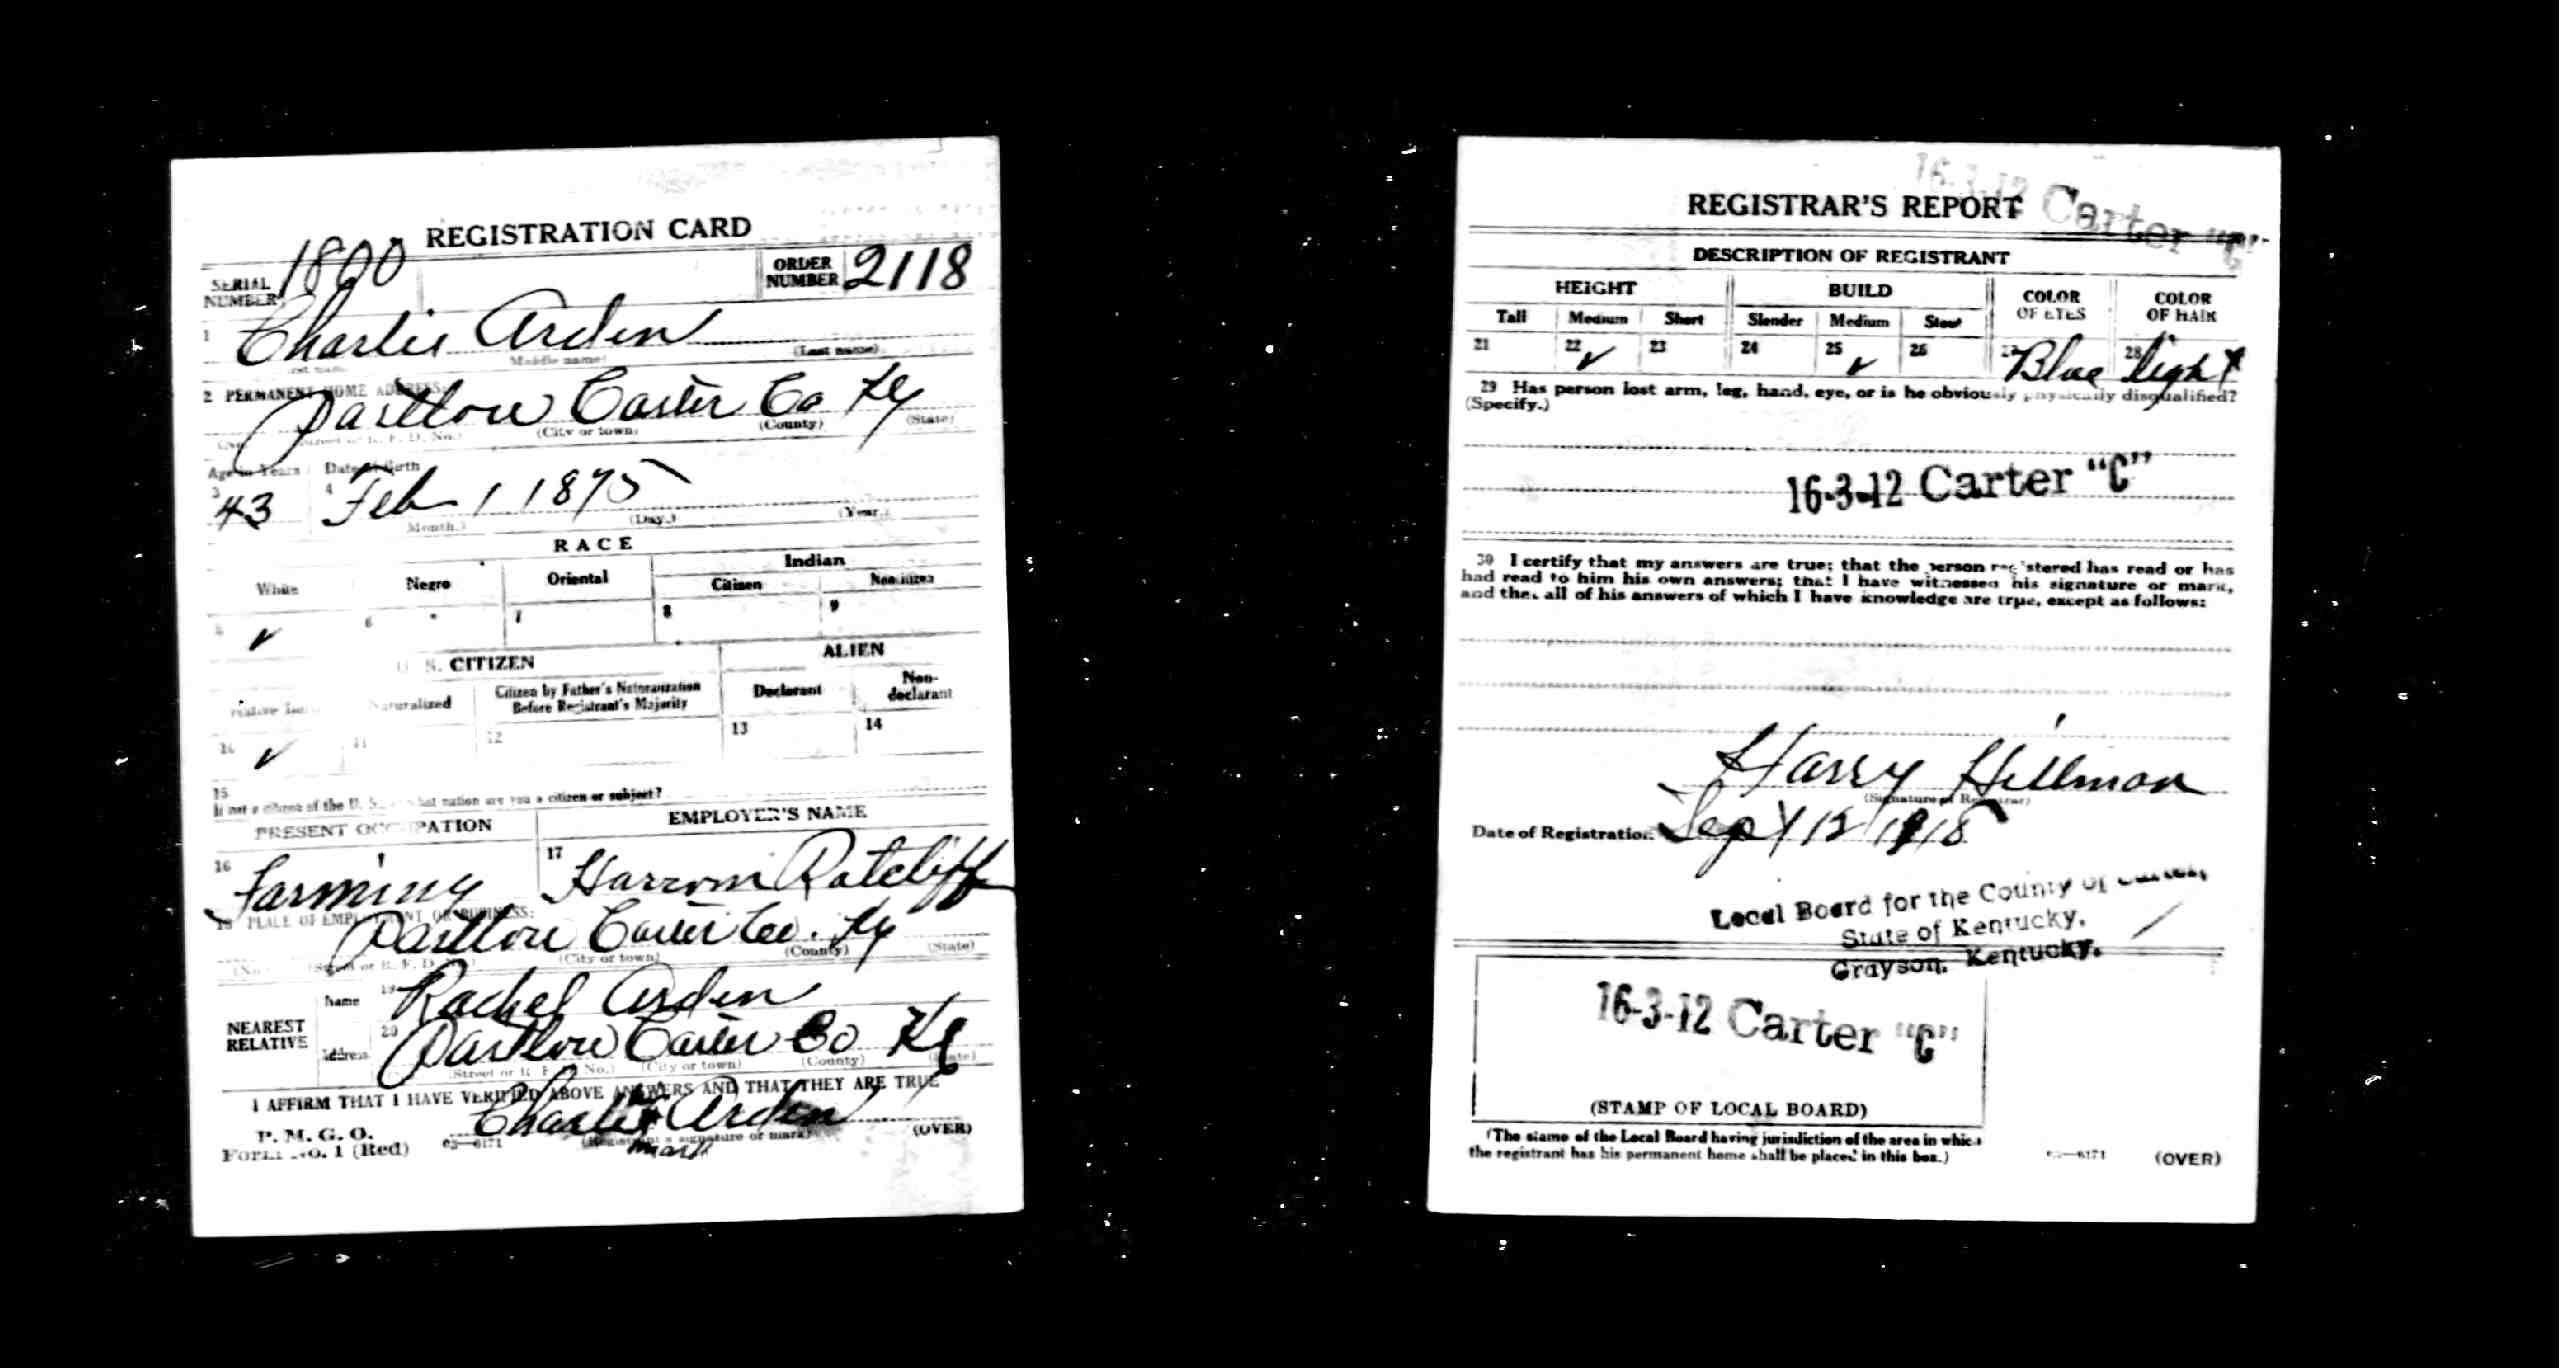 REGISTRATION CARD
SERIAL NUMBER 1800 ORDER NUMBER 2118
1 Charlie Arden
(Middle name) (Last name)
2 PERMANENT HOME ADDRESS:
Partlow Carter Co Ky
(City or town) (County) (State)
Age in Years Date of Birth
3 43 4 Feb 1 1875
(Month.) (Day.) (Year.)
RACE
White Negro Oriental Indian
Citizen
5 ✓ 6 7 8 9
U. S. CITIZEN ALIEN
Naturalized Citizen by Father's Naturalization Before Registrant's Majority Declarant Non-declarant
10 ✓ 11 12 13 14
15
If not a citizen of the U. S., nation are you a citizen or subject?
PRESENT OCCUPATION EMPLOYER'S NAME
16 farming 17 Ratcliff
18 PLACE OF EMPLOYMENT OR BUSINESS:
Partlow Carter Co. Ky
(No.) (Street or R. F. D. No.) (City or town) (County) (State)
NEAREST RELATIVE
Name 19 Rachel Arden
Address 20 Partlow Carter Co Ky
(Street or R. F. D. No.) (City or town) (County) (State)
I AFFIRM THAT I HAVE VERIFIED ABOVE ANSWERS AND THAT THEY ARE TRUE
Charlie Arden
P. M. G. O.
Form No. 1 (Red) 03—6171 (Registrant's signature or mark) (OVER)
mark
16-3-12 Carter "C"
REGISTRAR'S REPORT
DESCRIPTION OF REGISTRANT
HEIGHT BUILD COLOR OF EYES COLOR OF HAIR
Tall Medium Short Slender Medium Stout
21 22 ✓ 23 24 25 ✓ 26 27 Blue 28 light
29 Has person lost arm, leg, hand, eye, or is he obviously physically disqualified?
(Specify.)
16-3-12 Carter "C"
30 I certify that my answers are true; that the person registered has read or has
had read to him his own answers; that I have witnessed his signature or mark,
and that all of his answers of which I have knowledge are true, except as follows:
Harry Hillman
(Signature of Registrar)
Date of Registration Sept 12 1918
Local Board for the County of Carter,
State of Kentucky,
Grayson, Kentucky.
16-3-12 Carter "C"
(STAMP OF LOCAL BOARD)
(The stamp of the Local Board having jurisdiction of the area in which
the registrant has his permanent home shall be placed in this box.)
03—6171 (OVER)